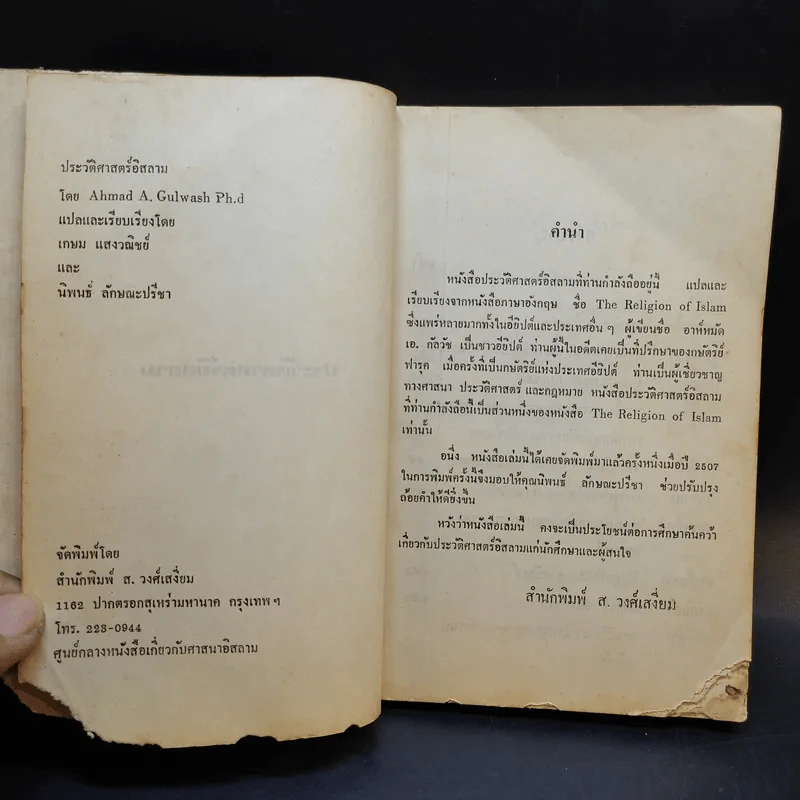 ประวัติศาสตร์อิสลาม
โดย Ahmad A. Gulwash Ph.d
แปลและเรียบเรียงโดย
เกษม แสงวณิชย์
และ
นิพนธ์ ลักษณะปรีชา
จัดพิมพ์โดย
สำนักพิมพ์ ส. วงศ์เสงี่ยม
1162 ปากตรอกสุเหร่ามหานาค กรุงเทพ ฯ
โทร. 223-0944
ศูนย์กลางหนังสือเกี่ยวกับศาสนาอิสลาม
คำนำ
หนังสือประวัติศาสตร์อิสลามที่ท่านกำลังถืออยู่นี้ แปลและ
เรียบเรียงจากหนังสือภาษาอังกฤษ ชื่อ The Religion of Islam
ซึ่งแพร่หลายมากทั้งในอียิปต์และประเทศอื่น ๆ ผู้เขียนชื่อ อาห์หมัด
เอ. กัลวัช เป็นชาวอียิปต์ ท่านผู้นี้ในอดีตเคยเป็นที่ปรึกษาของกษัตริย์
ฟารุค เมื่อครั้งที่เป็นกษัตริย์แห่งประเทศอียิปต์ ท่านเป็นผู้เชี่ยวชาญ
ทางศาสนา ประวัติศาสตร์ และกฎหมาย หนังสือประวัติศาสตร์อิสลาม
ที่ท่านกำลังถือนี้เป็นส่วนหนึ่งของหนังสือ The Religion of Islam
เท่านั้น
อนึ่ง หนังสือเล่มนี้ได้เคยจัดพิมพ์มาแล้วครั้งหนึ่งเมื่อปี 2507
ในการพิมพ์ครั้งนี้จึงมอบให้คุณนิพนธ์ ลักษณะปรีชา ช่วยปรับปรุง
ถ้อยคำให้ดียิ่งขึ้น
หวังว่าหนังสือเล่มนี้ คงจะเป็นประโยชน์ต่อการศึกษาค้นคว้า
เกี่ยวกับประวัติศาสตร์อิสลามแก่นักศึกษาและผู้สนใจ
สำนักพิมพ์ ส. วงศ์เสงี่ยม